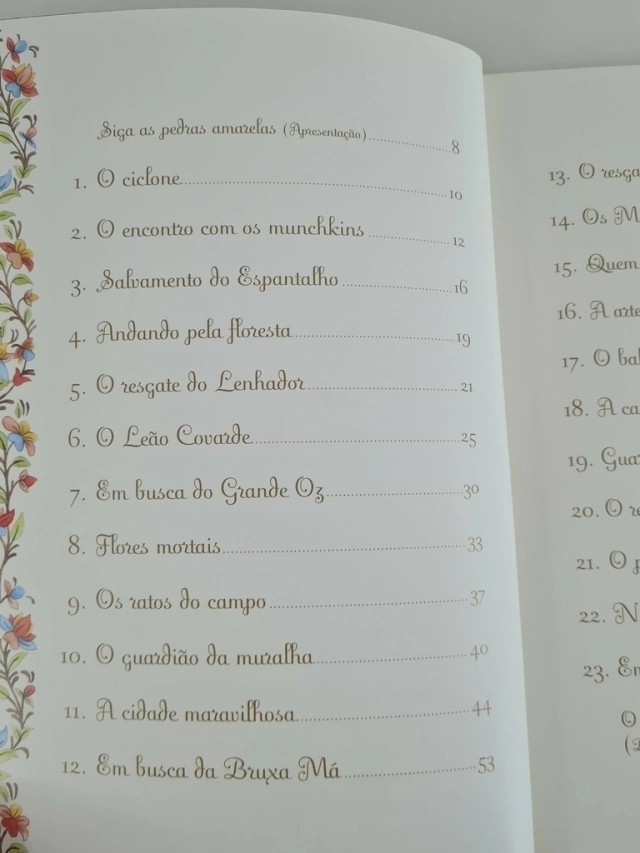 Siga as pedras amarelas (Apresentação) 8
1. O ciclone 10
2. O encontro com os munchkins 12
3. Salvamento do Espantalho 16
4. Andando pela floresta 19
5. O resgate do Lenhador 21
6. O Leão Covarde 25
7. Em busca do Grande Oz 30
8. Flores mortais 33
9. Os ratos do campo 37
10. O guardião da muralha 40
11. A cidade maravilhosa 44
12. Em busca da Bruxa Má 53
13. O
14. Os
15. Quem
16. A
17. O
18. A
19.
20. O
21. O
22.
23.
O